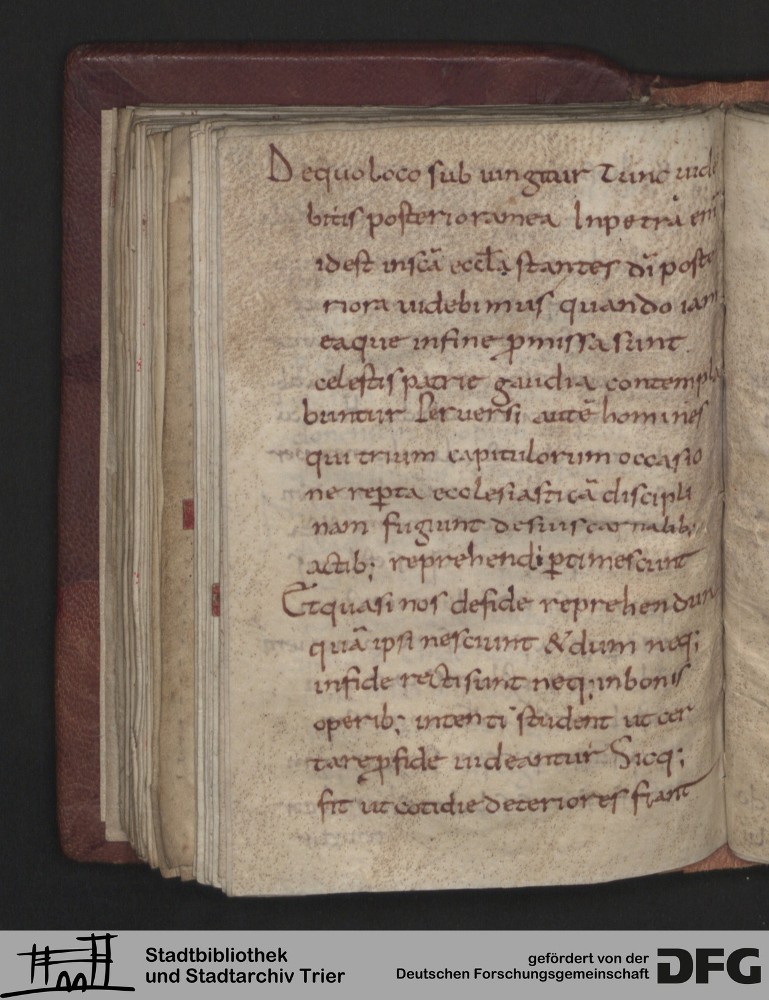 De quo loco sub iungitur Tunc uide
bitis posteriora mea In petra eni
id est in scā eccl̄a stantes dn̄i poste
riora uidebimus quando iam
ea que in fine ꝓmissa sunt
celestis patrie gaudia contempla
buntur Peruersi autē homines
qui trium capitulorum occasio
ne reꝑta ecclesiasticā discipli
nam fugiunt de suis carnalib;
actib; reprehendi ꝑtimescunt
Et quasi nos de fide reprehendunt
quā ipsi nesciunt & dum neq;
in fide recti sunt neq; in bonis
operib; intenti student ut cer
tare ꝓ fide uideantur Sicq;
fit ut cotidie deteriores fiant
Stadtbibliothek
und Stadtarchiv Trier
gefördert von der
Deutschen Forschungsgemeinschaft
DFG